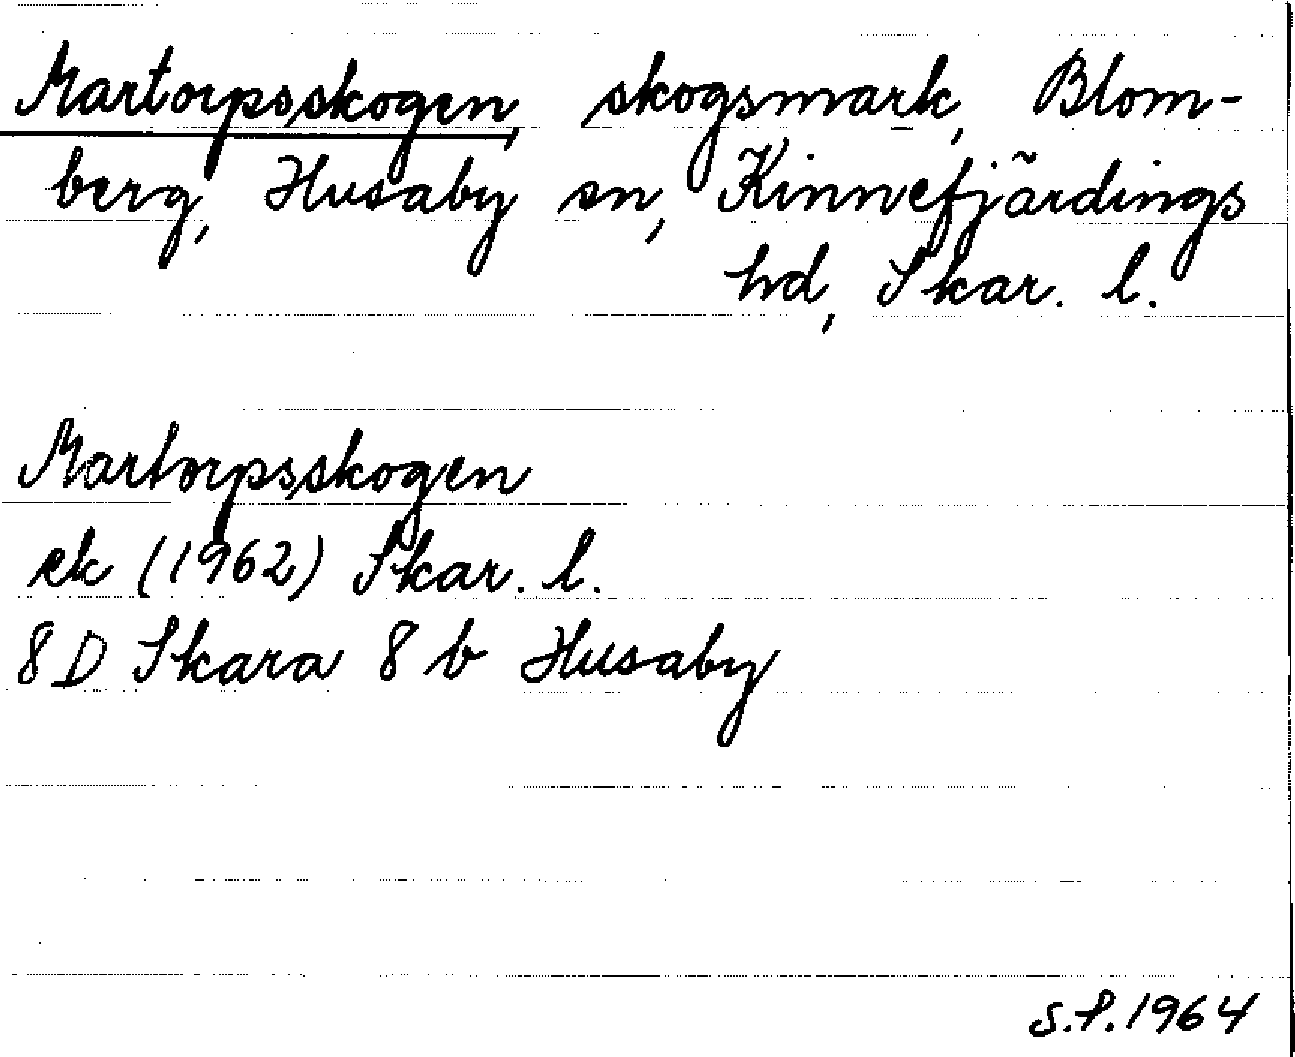 Martorpsskogen, skogsmark, Blom-
berg, Husaby sn, Kinnefjärdings
hd, Skar. l.
Martorpsskogen
ek (1962) Skar. l.
8 D Skara 8 b Husaby
S.P. 1964